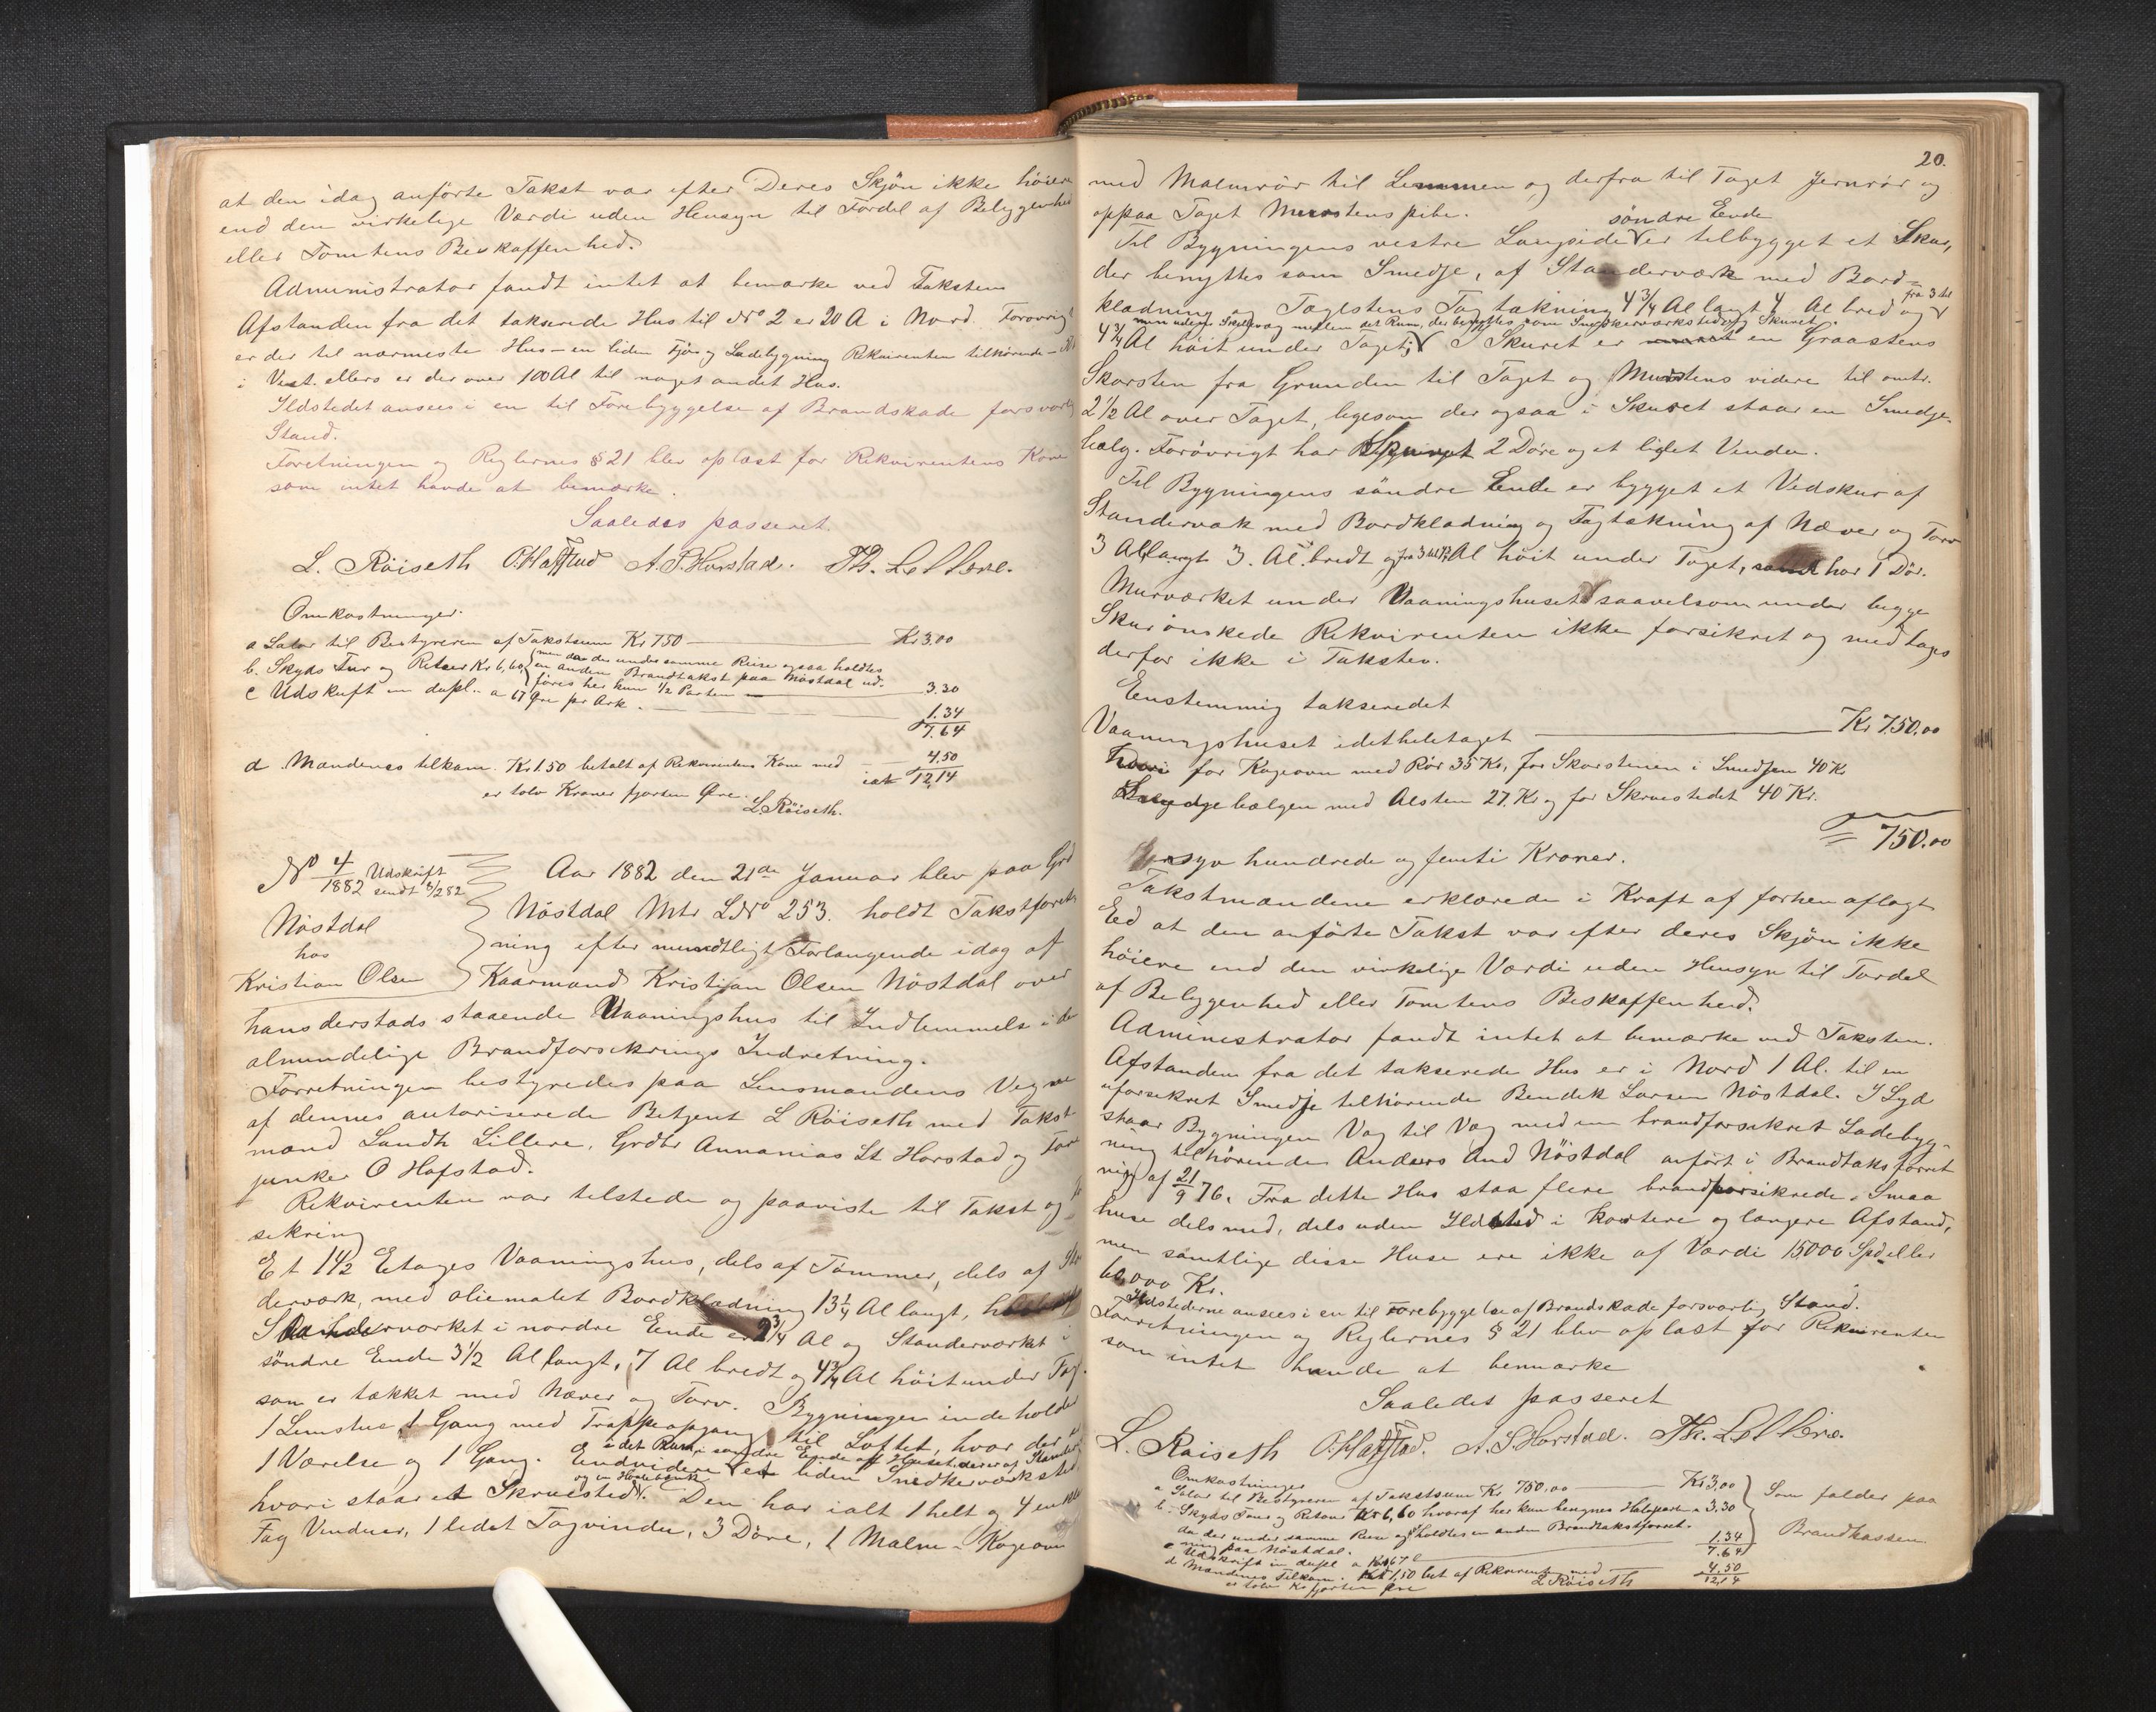 at den idag anförte Takst var efter Deres Skjön ikke höiere
end den virkelige Værdi uden Hensyn til Fordel af Beliggenhed
eller Tomtens Beskaffenhed.
Administrator fandt intet at bemærke ved Taksten
Afstanden fra det takserede Hus til No 2 er 20 A i Nord. Forøvrigt
er der til nærmeste Hus - en liden Fjös og Ladebygning Rekvirenten tilhörende
i Vest. ellers er der over 100 Al til noget andet Hus.
Ildstedet ansees i en til Forebyggelse af Brandskade forsvarlig
Stand.
Forretningen og Reglernes § 21 blev oplæst for Rekvirentens Kone
som intet havde at bemærke.
Saaledes passeret
L. Röiseth O. Hafstad A. S. Horstad. Th. Lillere.
Omkostninger.
a Salær til Bestyreren af Takstsum Kr 750 Kr 3.00
b. Skyds Tur og Retur Kr 6,60, men da der under samme Reise ogsaa holdtes
en anden Brandtakst paa Nöstdal ud-
föres her kun 1/2 Parten 3.30
c Udskrift in dupl. a 67 Öre pr Ark. 1.34
7.64
d Mændenes tilkom. Kr 1.50 betalt af Rekvirentens Kone med 4.50
ialt 12,14
er tolv Kroner fjorten Öre.
L. Röiseth.
No 4/1882 Udskrift
sendt 8/2 82
Nöstdal
hos
Kristian Olsen
Aar 1882 den 21de Januar blev paa Grd
Nöstdal Mtr LNo 253. holdt Takstforret-
ning efter mundtligt Forlangende idag af
Kaarmand Kristian Olsen Nöstdal over
hans derstads staaende Vaaningshus til Indlemmelse i den
almindelige Brandforsikrings Indretning.
Forretningen bestyredes paa Lensmandens Vegne
af dennes autoriserede Betjent L Röiseth med Takst-
mænd Lendh Lillere, Grdbr Annanias St Horstad og For
junker O Hafstad.
Rekvirenten var tilstede og paaviste til Takst og
sikring
Et 1 1/2 Etages Vaaningshus, dels af Tömmer, dels af
derværk, med oliemalet Bordklædning 13 1/4 Al langt,
Standerværket i nordre Ende er 2 3/4 Al og Standerværket i
söndre Ende 3 1/2 Al langt, 7 Al bredt og 4 3/4 Al höit under Tag.
som er tækket med Næver og Torv. Bygningen indeholder
1 Lemstue, 1 Gang med Trappeopgang til Loftet, hvor der er
1 Værelse og 1 Gang. Endvidere i det Rum i søndre Ende af Huset, der er af Stander
et liden Snedkerværksted
hvori staar et Skruested og en Høvlebænk. Den har ialt 1 helt og 4 enkle
Fag Vinduer, 1 lidet Tagvindu, 3 Döre, 1 Malm-Kogeovn
20.
med Malmrör til Lemmen og derfra til Taget Jernrör og
oppaa Taget Murstenspibe.
Til Bygningens vestre Langside söndre Ende er tilbygget et Skur,
der benyttes som Smedje, af Standerværk med Bord-
klædning og Taglstens Tagtækning 4 3/4 Al langt 4 Al bred og fra 3 til
4 3/4 Al höit under Taget; men uden Skillevæg mellem det Rum, der benyttes som Snedkerværksted og Skuret.
I Skuret er en Graastens
Skorsten fra Grunden til Taget og Murstens videre til omtr.
2 1/2 Al over Taget, ligesom der ogsaa i Skuret staar en Smedje-
bælg. Forövrigt har Skuret 2 Döre og et lidet Vindu.
Til Bygningens söndre Ende er bygget et Vedskur af
Standerværk med Bordklædning og Tagtækning af Næver og Torv
3 Al langt 3. Al. bredt og fra 3 til Al höit under Taget, har 1 Dör.
Murværket under Vaaningshuset saavelsom under begge
Skur önskede Rekvirenten ikke forsikret og medtages
derfor ikke i Taksten.
Eenstemmig takseredet
Vaaningshuset idetheletaget Kr 750.00
Hvori for Kogeovn med Rör 35 Kr, for Skorstenen i Smedjen 40 Kr
Smedjebælgen med Alsten 27. Kr og for Skruestedet 40 Kr.
= 750.00
er syv hundrede og femti Kroner.
Takstmændene erklærede i Kraft af forhen aflagt
Eed at den anförte Takst var efter deres Skjön ikke
höiere end den virkelige Værdi uden Hensyn til Fordel
af Beliggenhed eller Tomtens Beskaffenhed.
Administrator fandt intet at bemærke ved Taksten.
Afstanden fra det takserede Hus er i Nord 1 Al. til en
uforsikret Smedje tilhörende Bendik Larsen Nöstdal. I Syd
staar Bygningen Væg til Væg med en brandforsikret Ladebyg-
ning tilhörende Anders And Nöstdal anfört i Brandtaksforret-
ning af 21/9 76. Fra dette Hus staa flere brandforsikrede Smaa
huse dels med, dels uden Ildsted i kortere og længere Afstand,
men samtlige disse Huse ere ikke af Værdi 15000 Spd eller
60,000 Kr.
Ildstederne ansees i en til Forebyggelse af Brandskade forsvarlig Stand.
Forretningen og Reglernes § 21 blev oplæst for Rekvirenten
som intet havde at bemærke
Saaledes passeret
L. Röiseth O. Hafstad. A. S. Horstad. Th. Lillere.
Omkostninger
a Salær til Bestyreren af Takstsum Kr 750.00 Kr 3,00
b. Skyds Tour og Retour Kr 6,60 hvoraf her kun beregnes Halvparten 3.30
da der under samme Reise ogsaa holdtes en anden Brandtakstforret-
ning paa Nöstdal.
c Udskrift in dupl a 67 1.34
7.64
Som falder paa
Brandkassen.
d Mændenes Tilkom. Kr 1,50 bet af Rekvirenten med 4.50
12,14
er tolv Kr fjorten Öre
L Röiseth